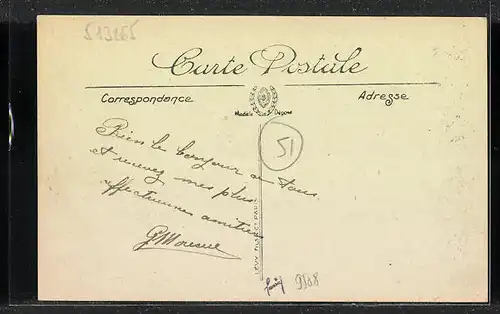 513265
Carte Postale
Correspondance
Adresse
Modèle Déposé
51
Bien le bonjour a tous
et recevez mes plus
affectueuses amitiés
LEVY FILS ET Cie PARIS
9808